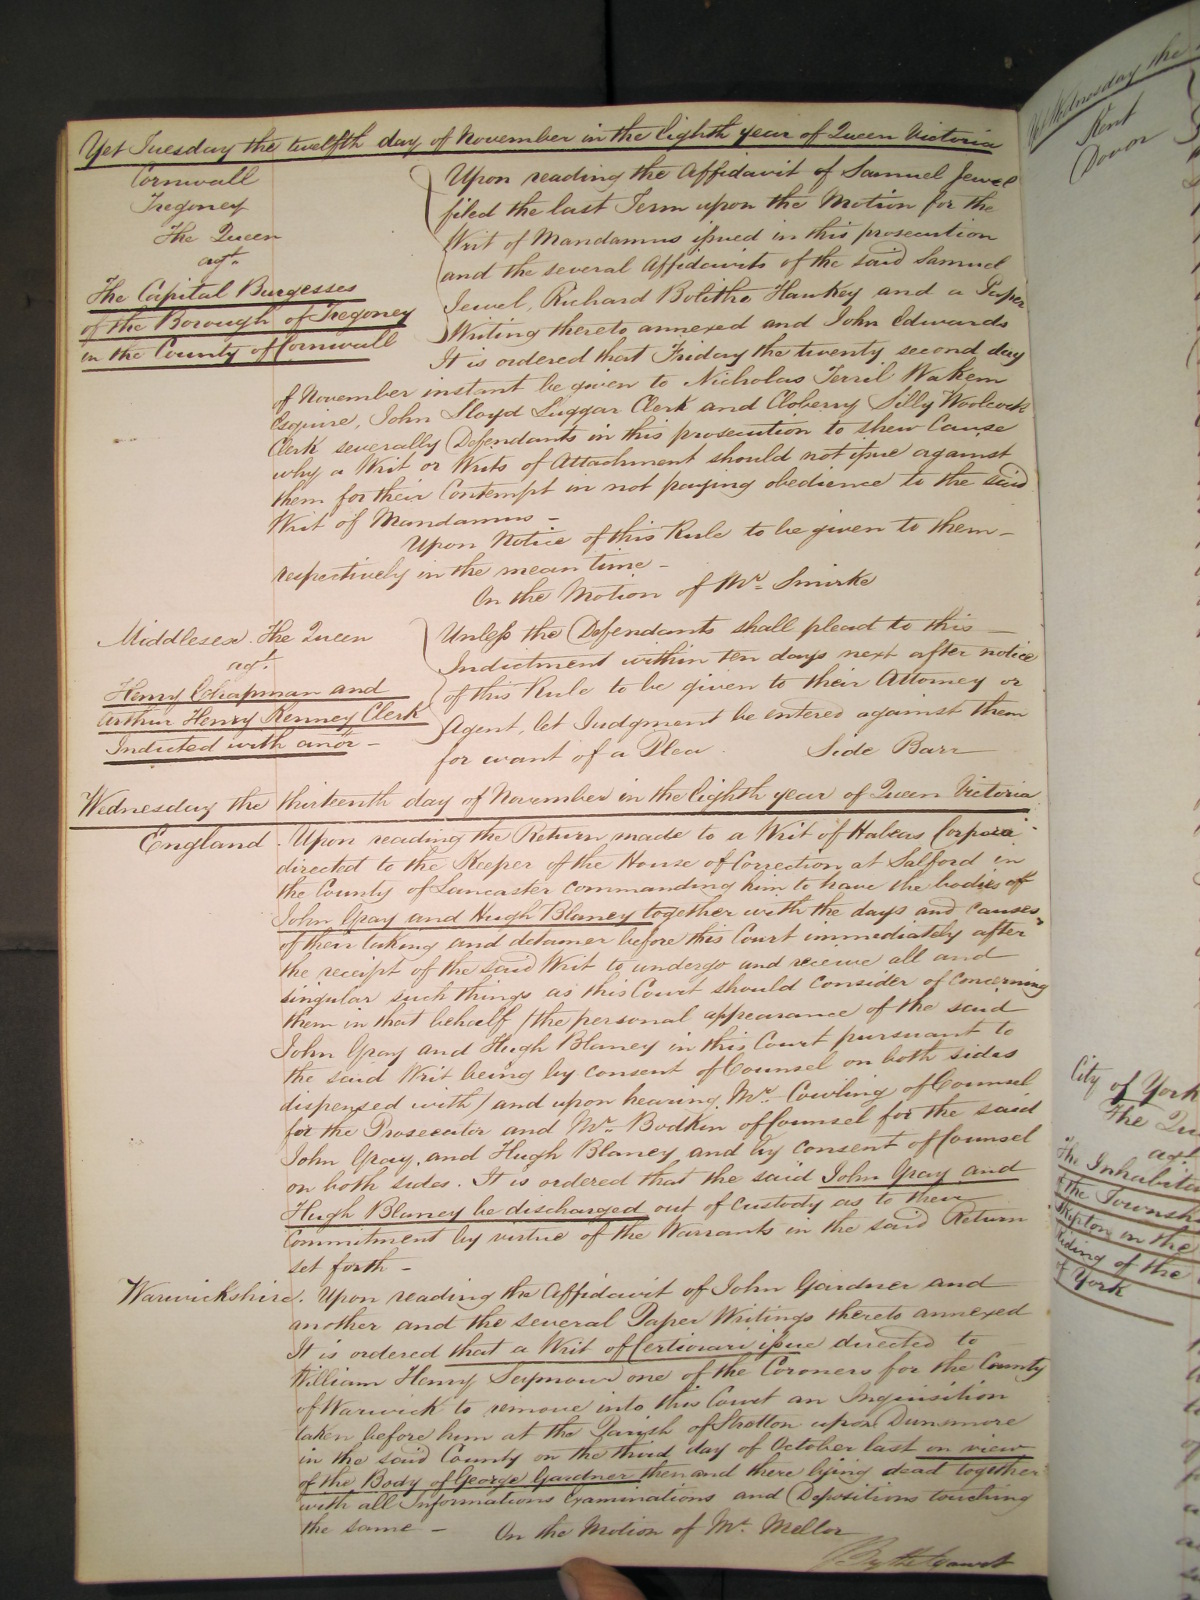 Yet Tuesday the twelfth day of November in the Eighth year of Queen Victoria
Cornwall
Tregoney
The Queen
agt.
The Capital Burgesses
of the Borough of Tregoney
in the County of Cornwall
Upon reading the Affidavit of Samuel Jewel
filed the last Term upon the Motion for the
Writ of Mandamus issued in this prosecution
and the several Affidavits of the said Samuel
Jewel, Richard Bolitho Hawkey and a Paper
Writing thereto annexed and John Edwards
It is ordered that Friday the twenty second day
of November instant be given to Nicholas Terril Wakem
Esquire, John Lloyd Luggar Clerk and Cloberry Silly Woolcock
Clerk severally Defendants in this prosecution to shew Cause
why a Writ or Writs of Attachment should not issue against
them for their Contempt in not paying obedience to the said
Writ of Mandamus –
Upon Notice of this Rule to be given to them –
respectively in the mean time –
On the Motion of Mr. Smirke
Middlesex. The Queen
agt.
Henry Chapman and
Arthur Henry Kenney Clerk
Indicted with anor –
Unless the Defendants shall plead to this –
Indictment within ten days next after notice
of this Rule to be given to their Attorney or
Agent, let Judgment be entered against them
for want of a Plea. Side Barr
Wednesday the thirteenth day of November in the Eighth year of Queen Victoria
England. Upon reading the Return made to a Writ of Habeas Corpora
directed to the Keeper of the House of Correction at Salford in
the County of Lancaster commanding him to have the bodies of
John Gray and Hugh Blaney together with the days and causes
of their taking and detainer before this Court immediately after
the receipt of the said Writ to undergo and receive all and
singular such things as this Court should consider of concerning
them in that behalf / the personal appearance of the said
John Gray and Hugh Blaney in this Court pursuant to
the said Writ being by consent of Counsel on both sides
dispensed with / and upon hearing Mr. Cowling of Counsel
for the Prosecutor and Mr. Bodkin of Counsel for the said
John Gray, and Hugh Blaney and by consent of Counsel
on both sides. It is ordered that the said John Gray and
Hugh Blaney be discharged out of custody as to their
Commitment by virtue of the Warrants in the said Return
set forth –
Warwickshire. Upon reading the Affidavit of John Gardner and
another and the several Paper Writings thereto annexed
It is ordered that a Writ of Certiorari issue directed to
William Henry Seymour one of the Coroners for the County
of Warwick to remove into this Court an Inquisition
taken before him at the Parish of Stretton upon Dunsmore
in the said County on the third day of October last on view
of the Body of George Gardner then and there lying dead together
with all Informations Examinations and Depositions touching
the same – On the Motion of Mr. Mellor
By the Court
Yet Wednesday the
Kent
Dover
City of York
The Qu
agt
The Inhabita
of the Townshi
in the
Riding of the
of York